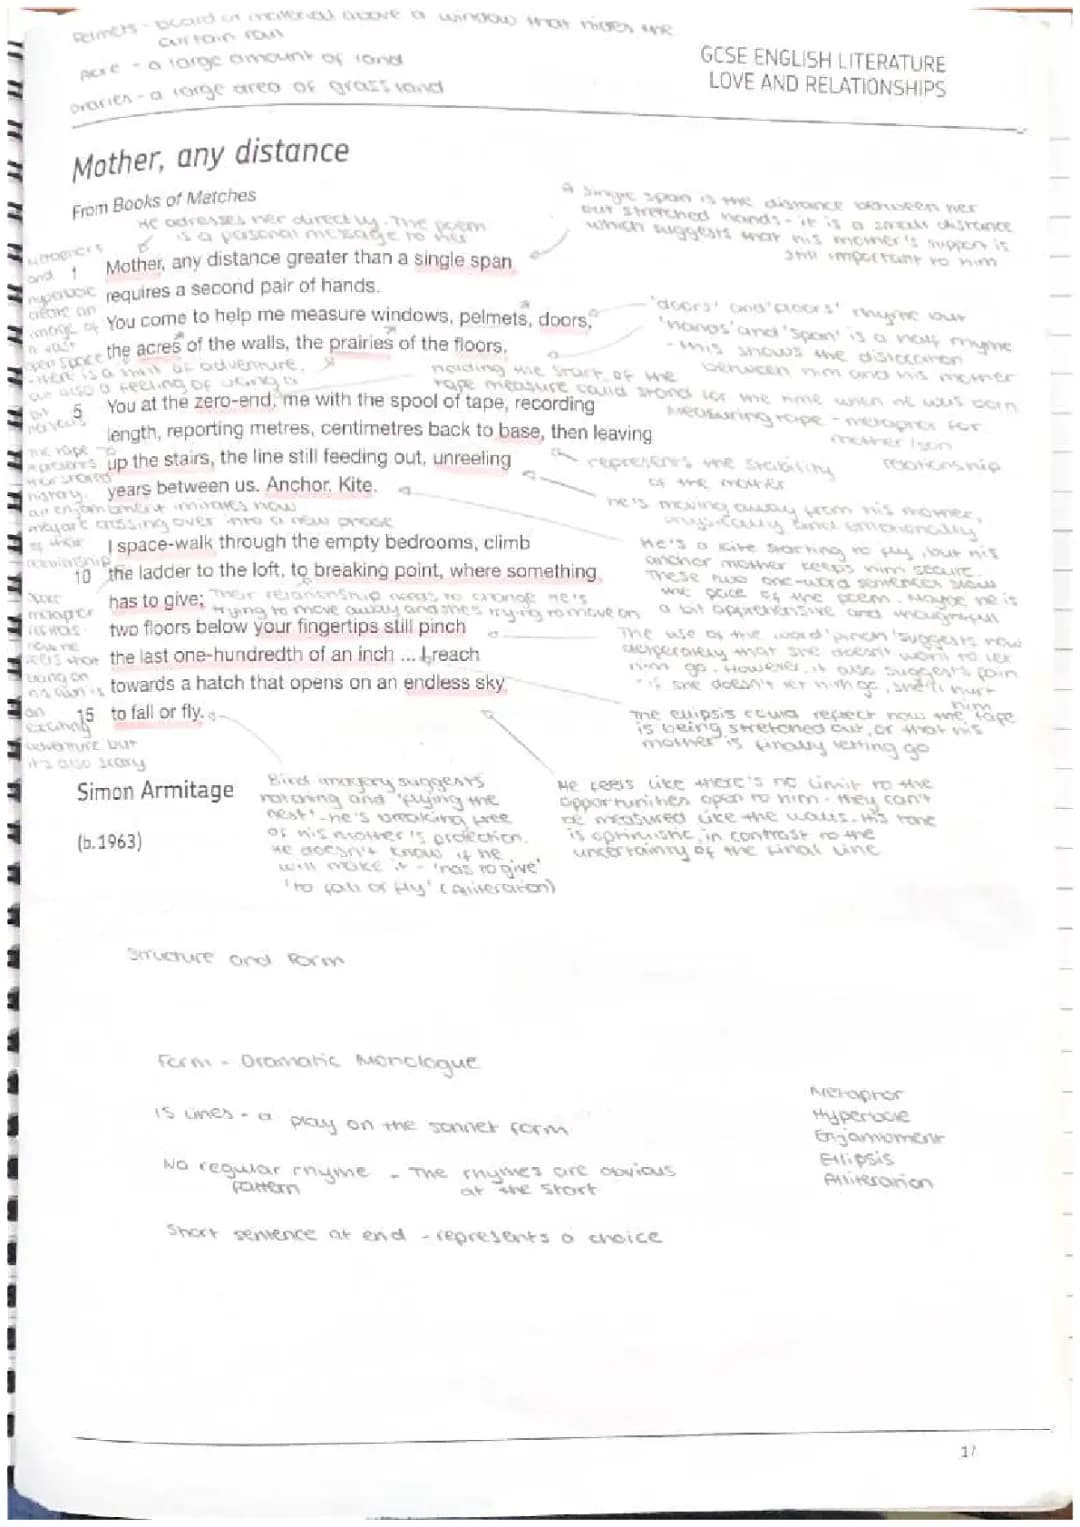 Pelmets - board or material above a window that hides the
curtain rail
acre - a large amount of land
praries - a large area of grassland
GCSE ENGLISH LITERATURE
LOVE AND RELATIONSHIPS
Mother, any distance
From Books of Matches
He adresses her directly. The poem
is a pasonal message to her
A single span is the distance between her
out stretched hands - it is a small distance
which suggests that his mother's support is
still important to him
1 Mother, any distance greater than a single span
requires a second pair of hands.
You come to help me measure windows, pelmets, doors,
the acres of the walls, the prairies of the floors.
metaphors
and
hyperbole
create an
image of
a vast
open space
- there is a hint of adventure,
but also a feeling of being a
bit
nervous
'doors' and 'floors' rhyme but
'hands' and 'span' is a half rhyme
- this shows the distance
between him and his mother
holding the start of the
tape measure could stand for the time when he was born
Measuring tape - metaphor for
mother/son
relationship
5 You at the zero-end, me with the spool of tape, recording
length, reporting metres, centimetres back to base, then leaving
up the stairs, the line still feeding out, unreeling
years between us. Anchor. Kite.
the tape
represents
their shared
history.
represents the stability
of the mother
he's moving away from his mother,
physically and emotionally
enjambment imitates how
they are crossing over into a new phase
of their
relationship
I space-walk through the empty bedrooms, climb
10 the ladder to the loft, to breaking point, where something
has to give;
Their relationship needs to change he's
trying to move away and she's trying to move on
two floors below your fingertips still pinch
the last one-hundredth of an inch ... I reach
towards a hatch that opens on an endless sky
15 to fall or fly.
He's a kite starting to fly, but his
anchor mother keeps him secure.
These two one-word sentences slow
the pace of the poem. Maybe he is
a bit apprehensive and thoughtful
Space
metaphor
reflects
how he
feels that
being on
his own is
an
exciting
adventure but
it's also scary
The use of the word 'pinch' suggests how
desperately that she doesn't want to let
him go. However, it also suggests pain
- if she doesn't let him go, she'll hurt
him
The ellipsis could reflect how the tape
is being stretched out, or that his
mother is finally letting go
Simon Armitage
(b.1963)
Bird imagery suggests
hatching and 'flying the
nest' - he's breaking free
of his mother's protection.
He doesn't know if he
will make it - 'has to give'
'to fall or fly' (alliteration)
He feels like there's no limit to the
opportunities open to him - they can't
be measured like the walls. His tone
is optimistic, in contrast to the
uncertainty of the final line
Structure and Form
Form - Dramatic Monologue
15 lines - a play on the sonnet form
No regular rhyme
pattern
- The rhymes are obvious
at the start
Short sentence at end - represents a choice
Metaphor
Hyperbole
Enjambment
Ellipsis
Alliteration
17